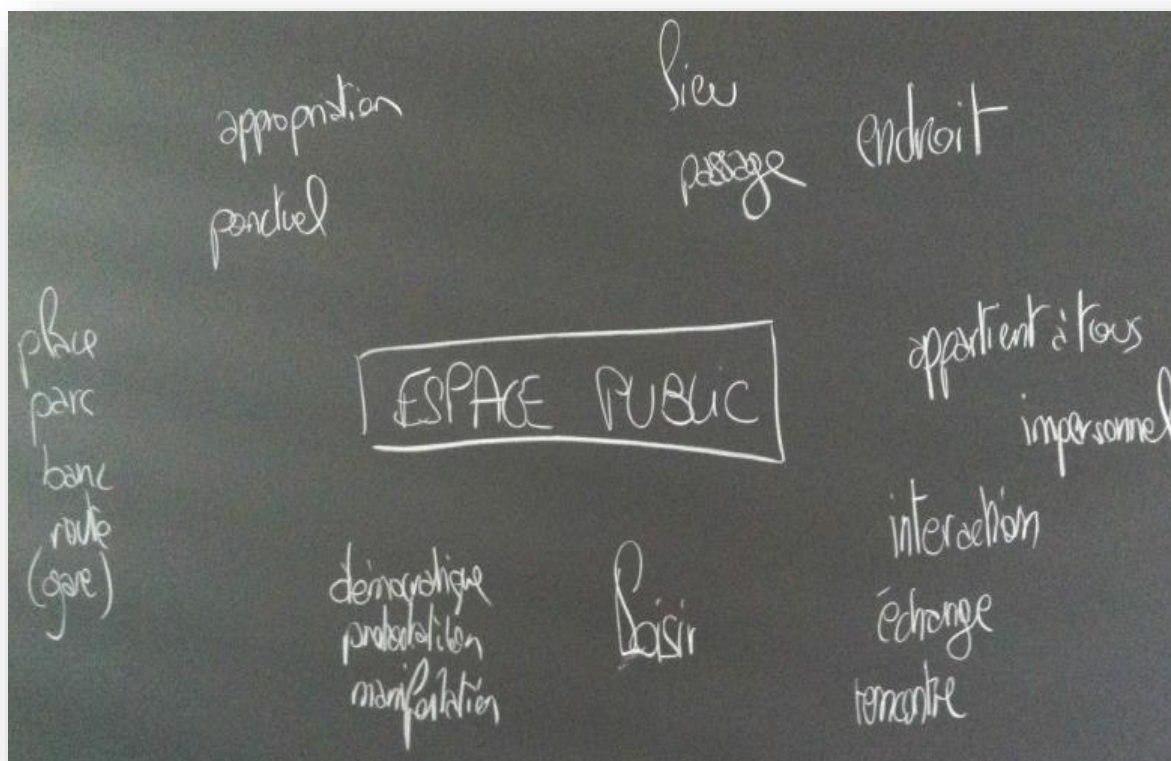 lieu
appropriation
endroit
passage
ponctuel
place
parc
banc
route
(gare)
ESPACE PUBLIC
appartient à tous
impersonnel
interaction
échange
rencontre
démocratique
protestation
manifestation
loisir